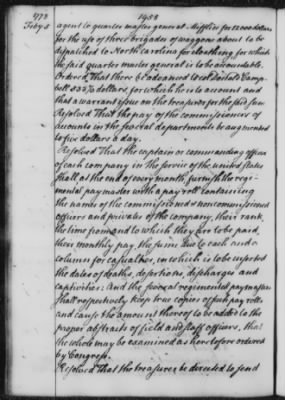 1778
Feby 5
1458
agent to quarter master general Mifflin for 20000 dollars
for the use of three brigades of waggons about to be
dispatched to North Carolina for cloathing, for which
the said quarter master general is to be accountable.
Ordered, That there be advanced to col Camp
bell dollars, for which he is to account and
that a warrant issue on the treasurer for the said sum
Resolved That the pay of the commissioners of
accounts in the several departments be augmented
to five dollars a day.
Resolved That the captain or commanding officer
of each company in the service of the united states
shall at the end of every month furnish the regi-
mental pay master with a pay roll containing
the names of the commissioned & noncommissioned
officers and privates of the company, their rank,
the time from and to which they are to be paid,
their monthly pay, the sums due to each and a
column for casualties, in which is to be inserted
the dates of deaths, desertions, discharges and
captivities: And the several regimental pay masters
shall respectively keep true copies of such pay rolls
and cause the amount thereof to be added to the
proper abstracts of field and staff officers, that
the whole may be examined as heretofore ordered
by Congress.
Resolved That the treasurer be directed to send